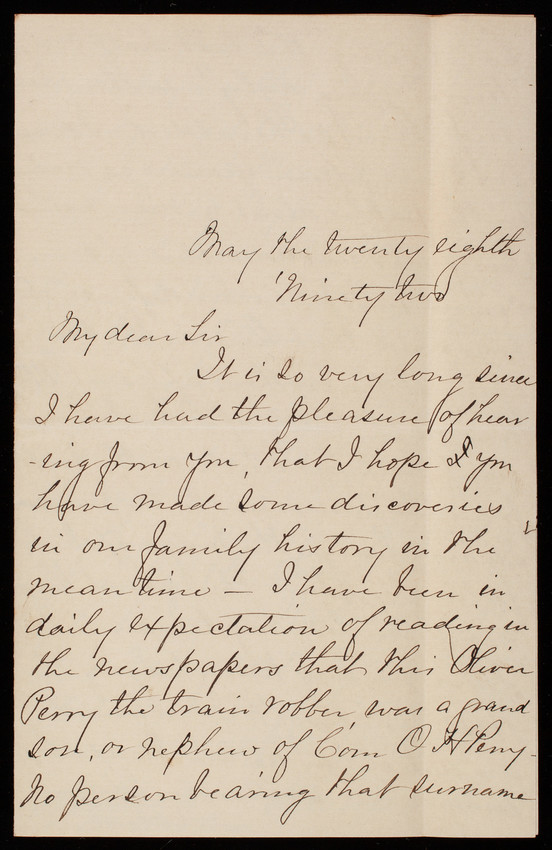 May the twenty eighth
'Ninety two
My dear Sir
It is so very long since
I have had the pleasure of hear
-ing from you, that I hope you
have made some discoveries
in our family history in the
meantime – I have been in
daily expectation of reading in
the newspapers that this Oliver
Perry the train robber, was a grand
son, or nephew of Com O H Perry -
No person bearing that surname